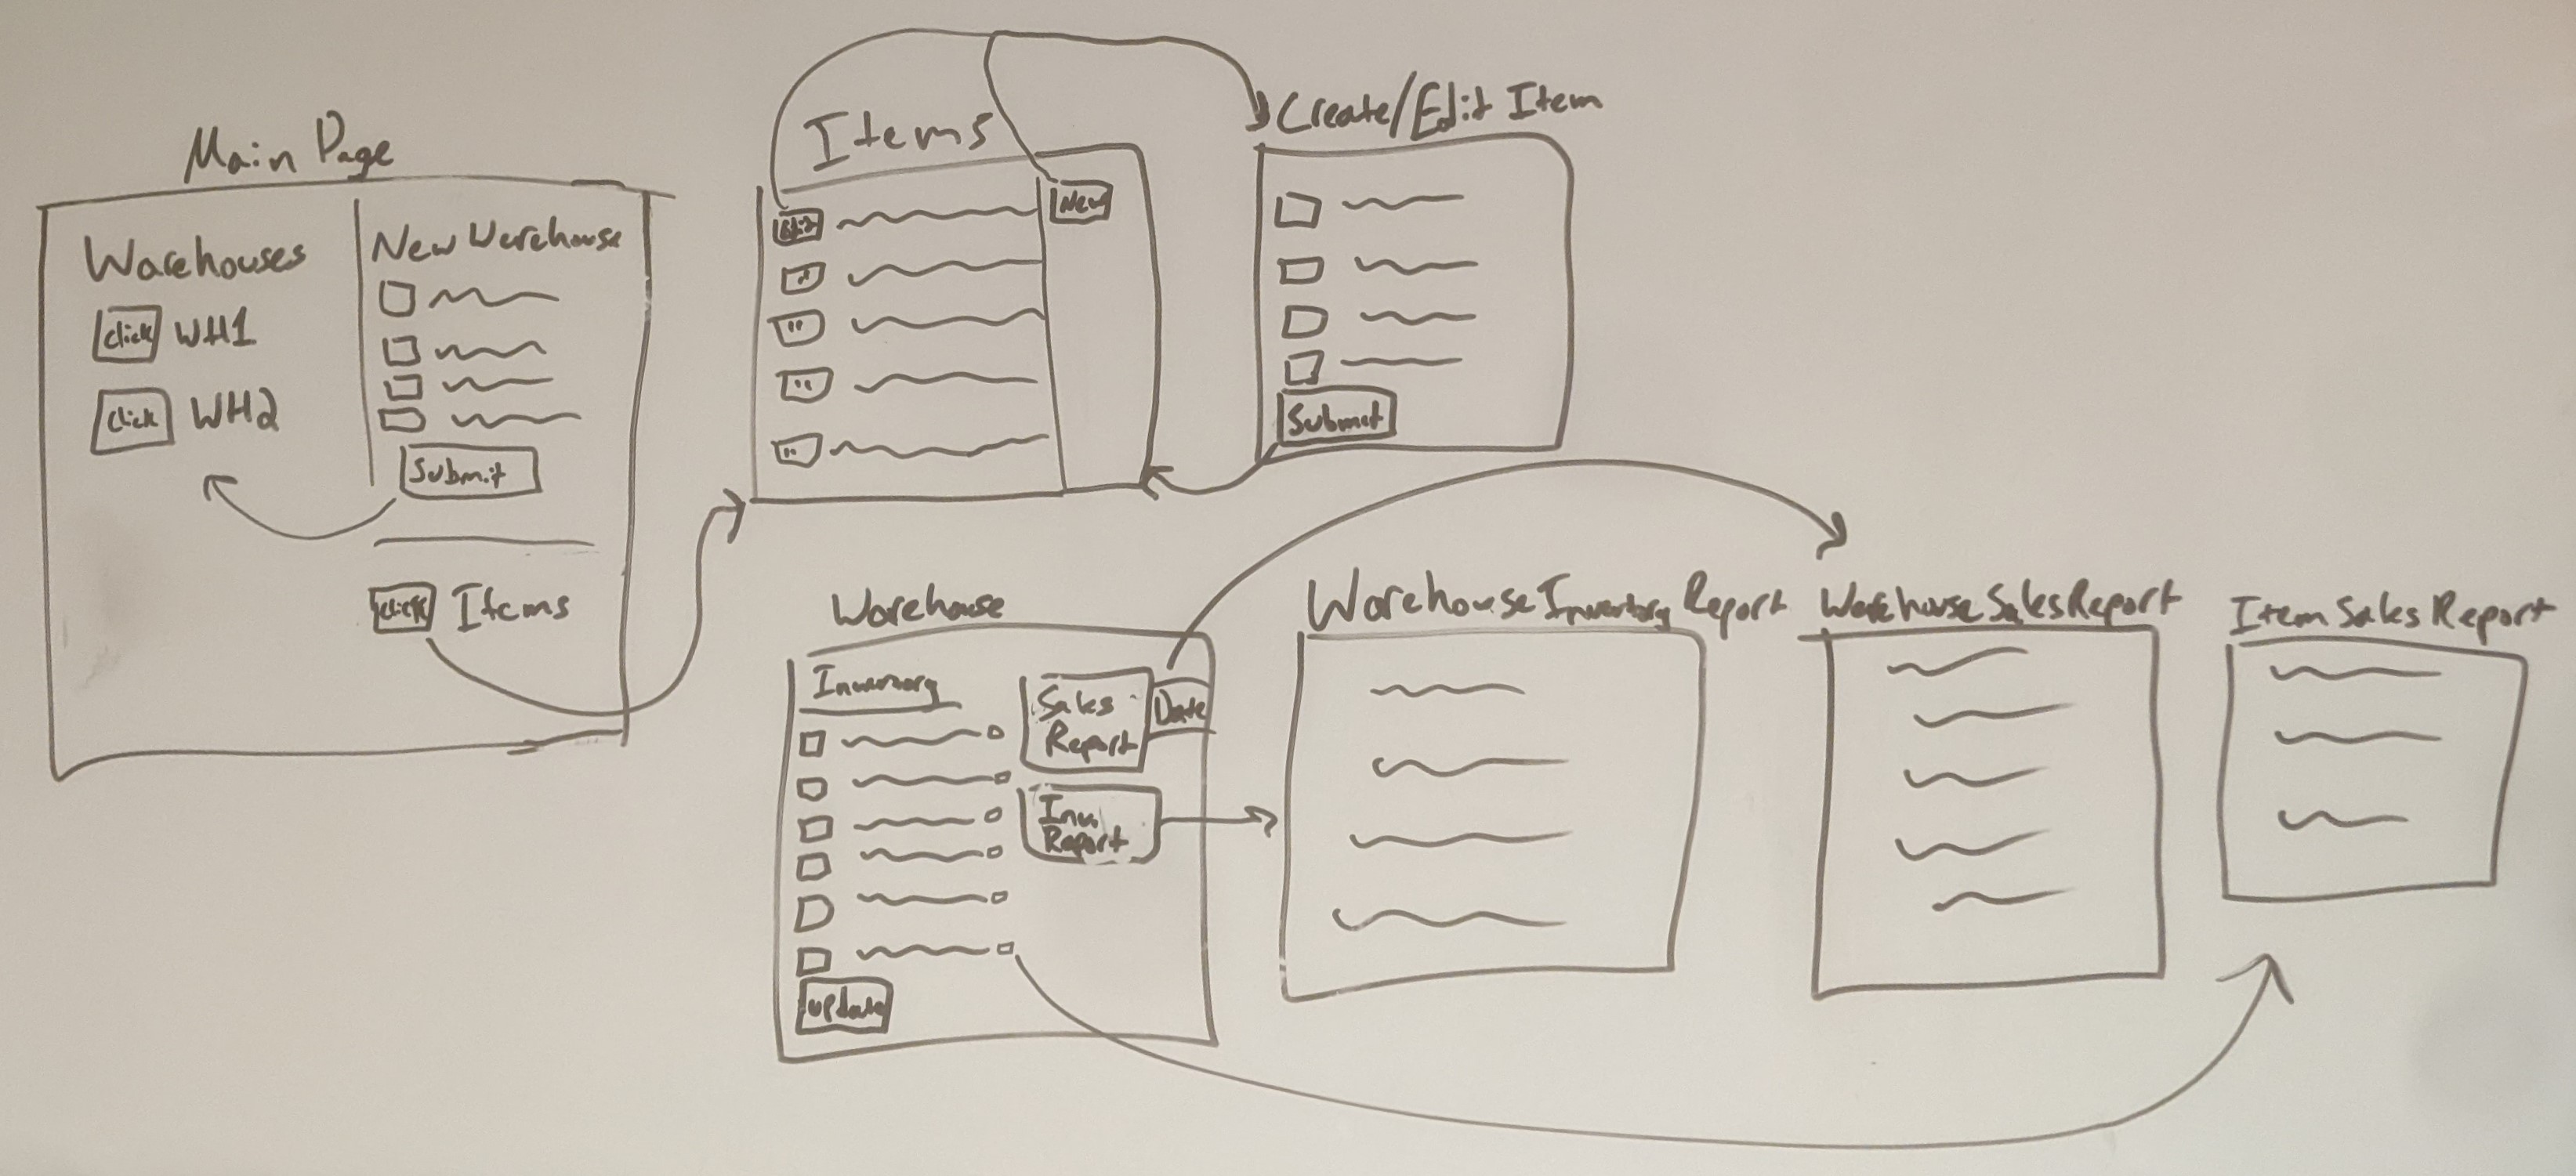 Main Page
Warehouses
Click WH1
Click WH2
New Warehouse
Submit
Click Items
Items
Edit
New
Create/Edit Item
Submit
Warehouse
Inventory
Sales
Report
Date
Inv.
Report
update
Warehouse Inventory Report
Warehouse Sales Report
Item Sales Report